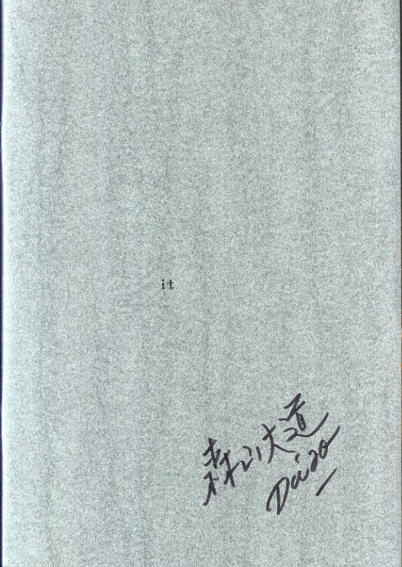 it
森山大道
Daido